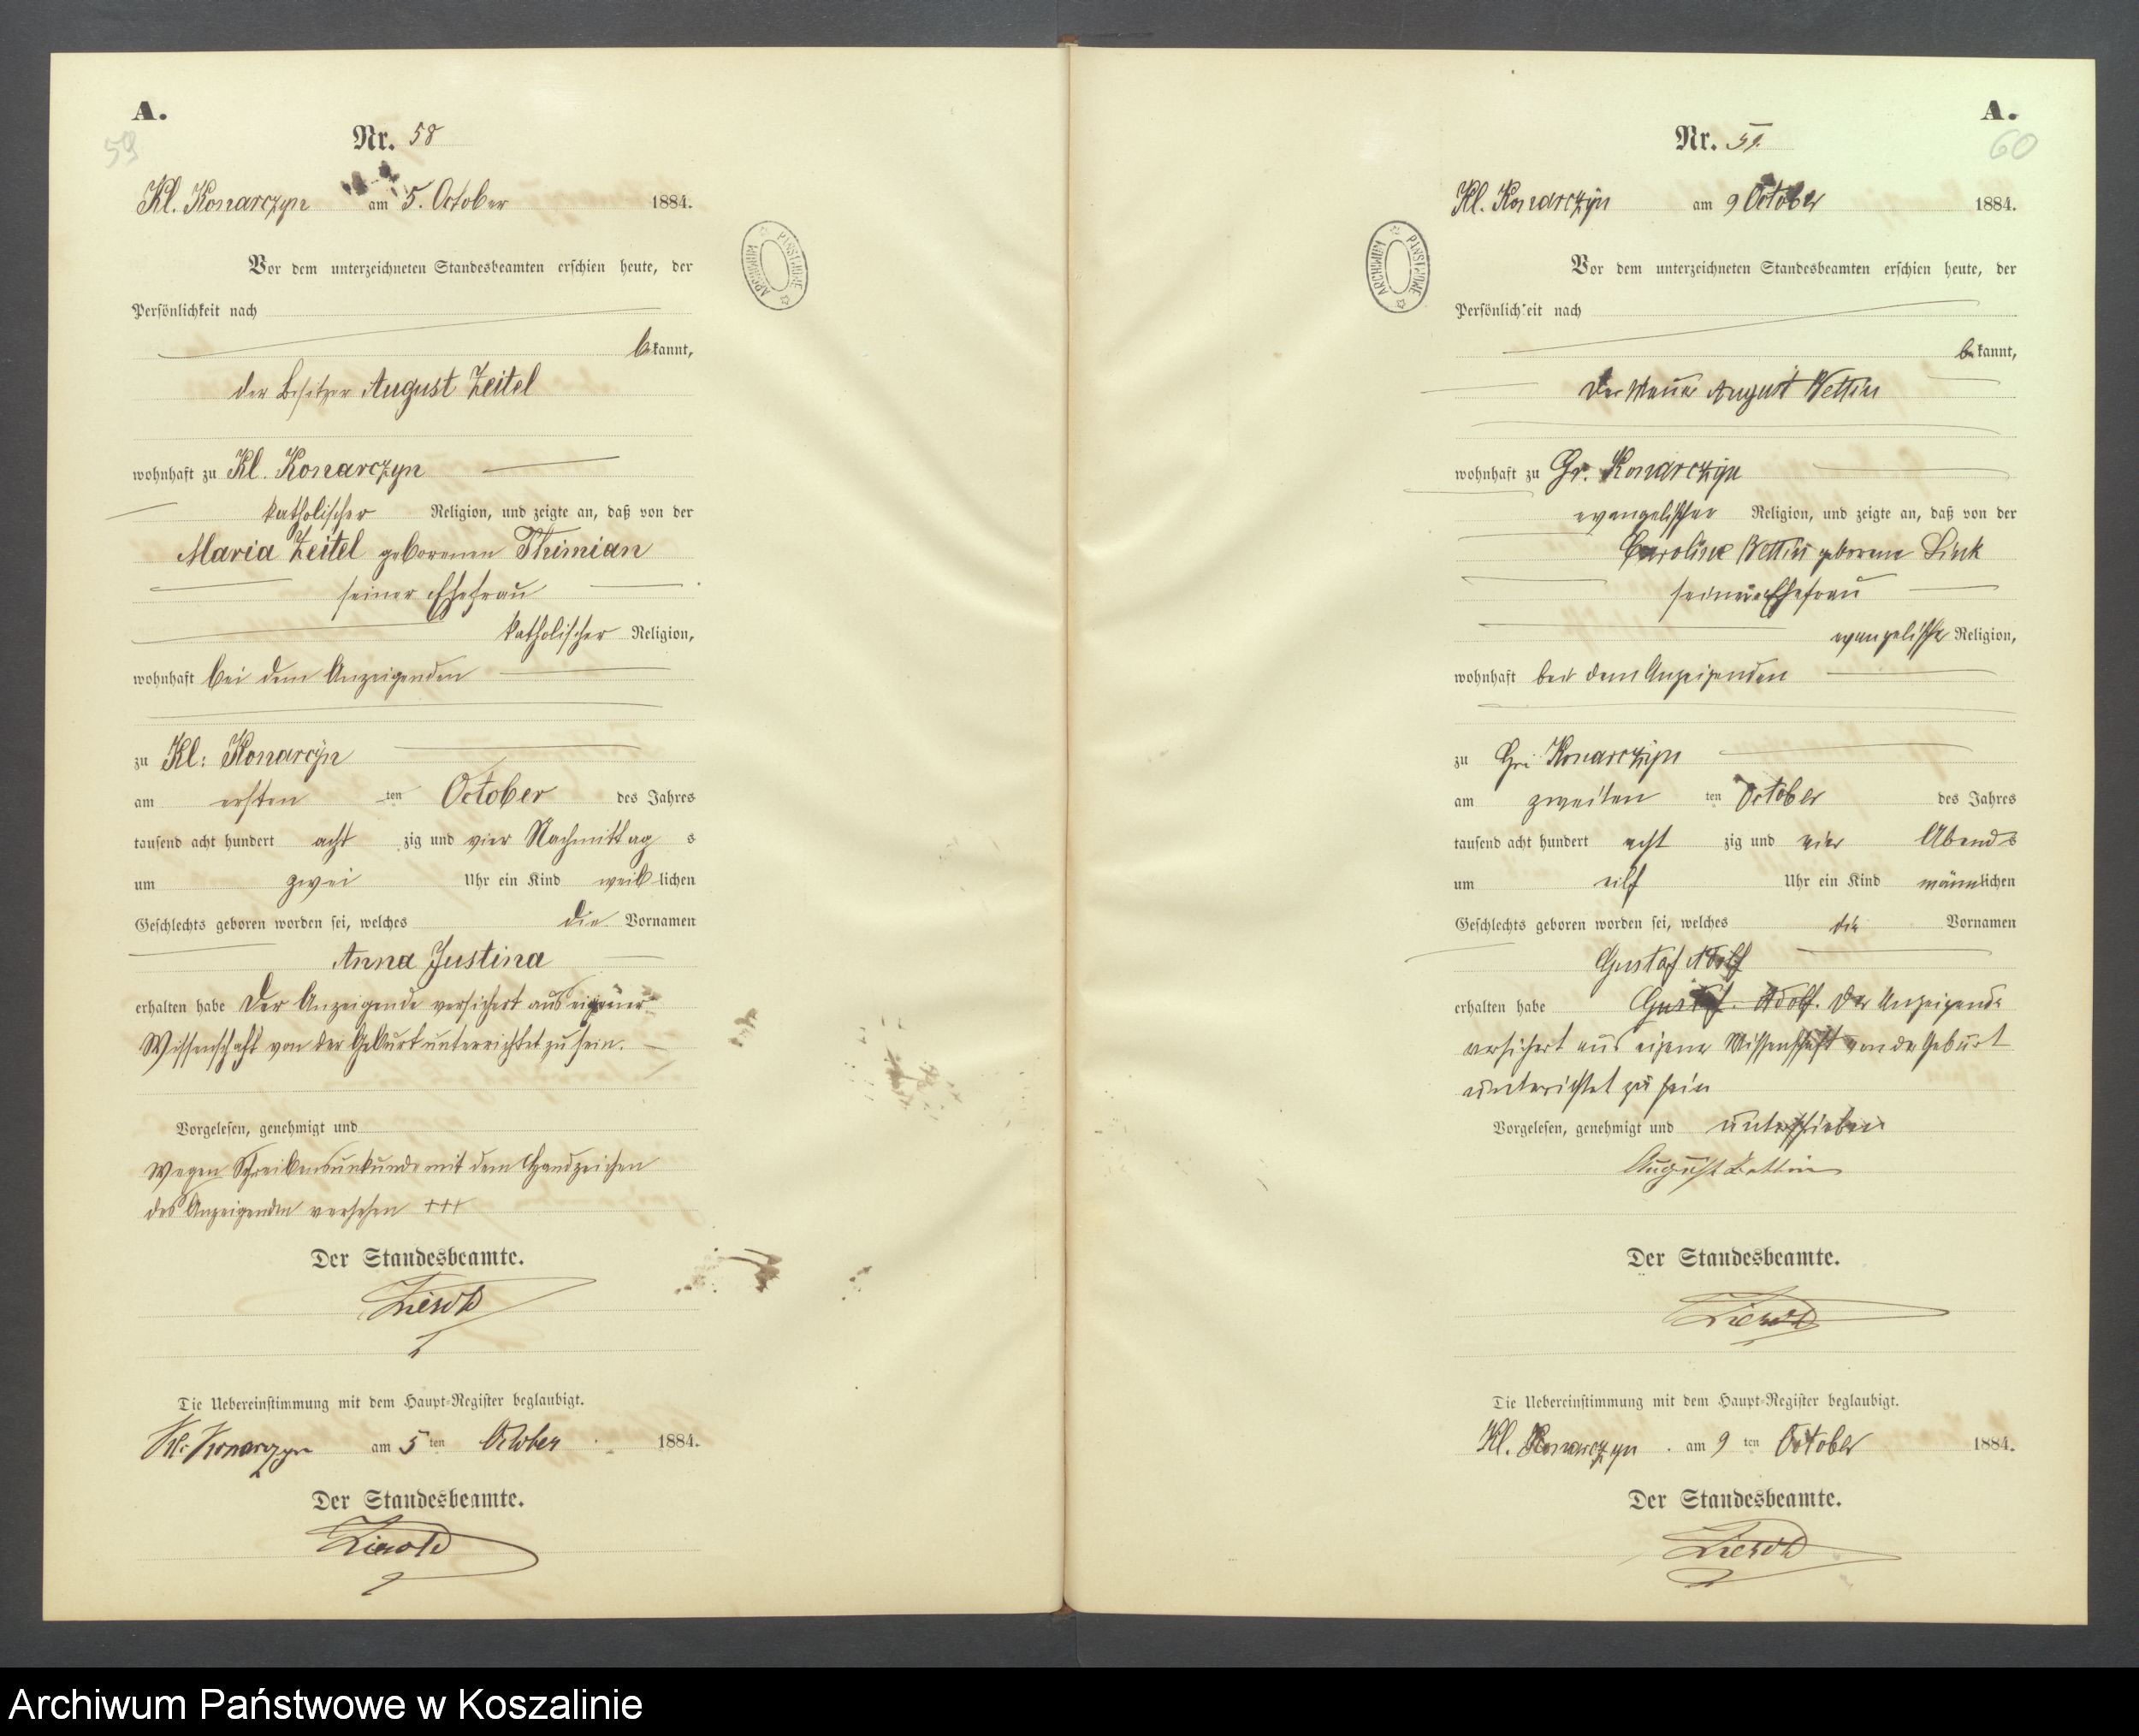 A.
59
Nr. 58
Kl. Konarczyn am 5. October 1884.
Vor dem unterzeichneten Standesbeamten erschien heute, der
Persönlichkeit nach
bekannt,
der Besitzer August Zeitel
wohnhaft zu Kl. Konarczyn
katholischer Religion, und zeigte an, daß von der
Maria Zeitel geborenen Thimian
seiner Ehefrau
katholischer Religion,
wohnhaft bei dem Anzeigenden
zu Kl: Konarcyn
am ersten ten October des Jahres
tausend acht hundert acht zig und vier Nachmittag s
um zwei Uhr ein Kind weiblichen
Geschlechts geboren worden sei, welches die Vornamen
Anna Justina
erhalten habe Der Anzeigende versichert aus eigener
Wissenschaft von der Geburt unterrichtet zu sein.
Vorgelesen, genehmigt und
Wegen Schreibensunkunde mit dem Handzeichen
des Anzeigenden versehen +++
Der Standesbeamte.
Die Uebereinstimmung mit dem Haupt-Register beglaubigt.
Kl: Konarczyn am 5 ten October 1884.
Der Standesbeamte.
ARCHIWUM PAŃSTWOWE
A.
60
Nr. 59.
Kl. Konarczyn am 9 October 1884.
Vor dem unterzeichneten Standesbeamten erschien heute, der
Persönlichkeit nach
bekannt,
Der August Wettin
wohnhaft zu Gr. Konarczyn
evangelischer Religion, und zeigte an, daß von der
Caroline Wettin geborene Link
seiner Ehefrau
evangelischer Religion,
wohnhaft bei dem Anzeigenden
zu Gr: Konarczyn
am zweiten ten October des Jahres
tausend acht hundert acht zig und vier Abends
um eilf Uhr ein Kind männlichen
Geschlechts geboren worden sei, welches die Vornamen
Gustaf Adolf
erhalten habe Gustaf. Adolf. Der Anzeigende
versichert aus eigener Wissenschaft von der Geburt
unterichtet zu sein
Vorgelesen, genehmigt und unterschrieben
August Wettin
Der Standesbeamte.
Die Uebereinstimmung mit dem Haupt-Register beglaubigt.
Kl. Konarczyn. am 9 ten October 1884.
Der Standesbeamte.
ARCHIWUM PAŃSTWOWE
Archiwum Państwowe w Koszalinie